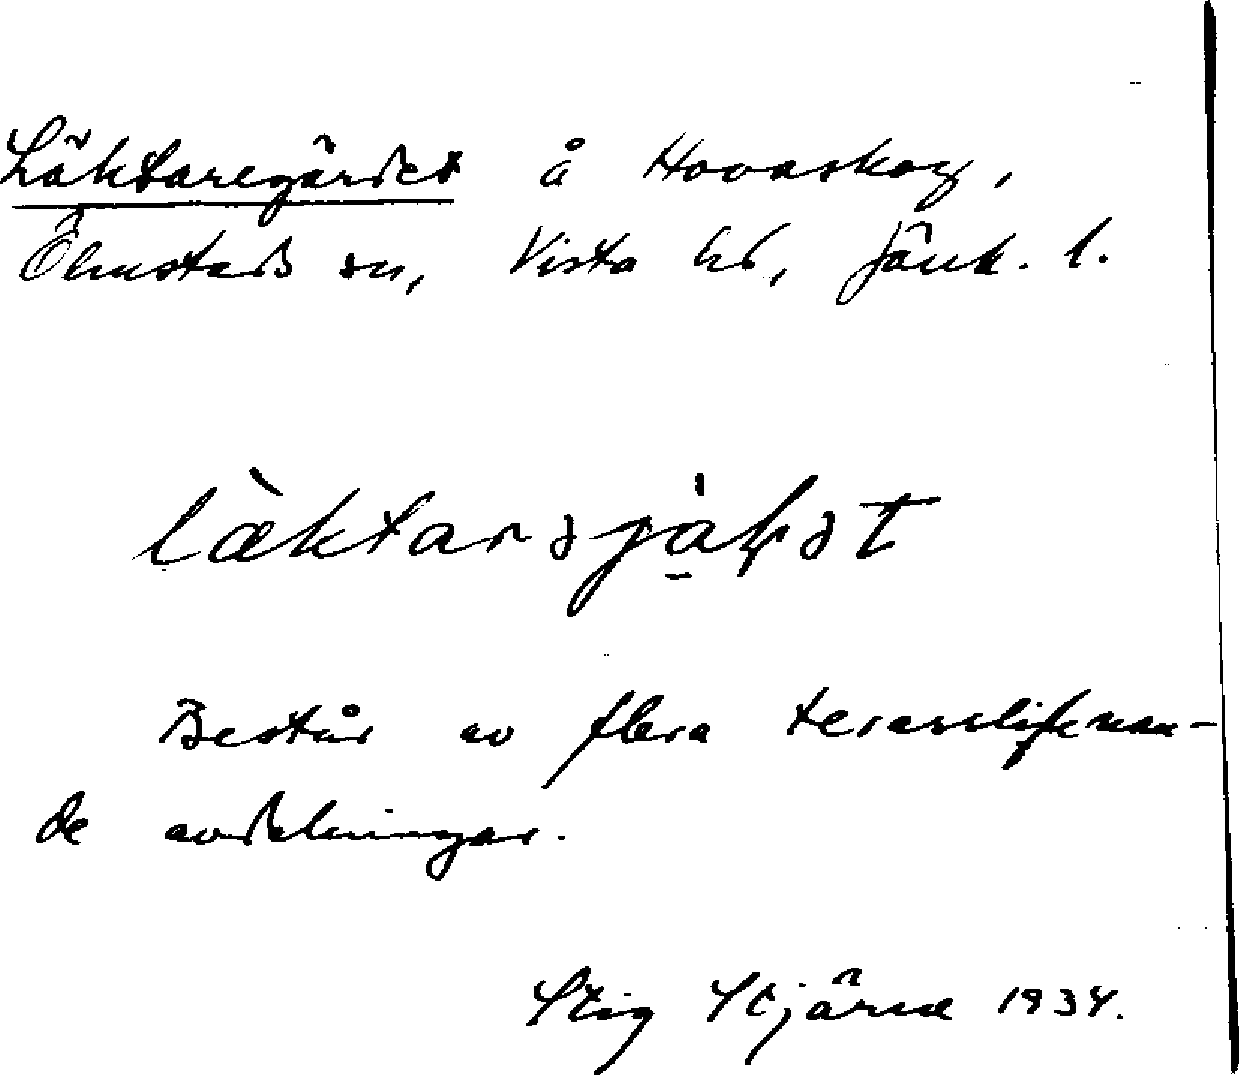 Läktaregärdet å Hovaskog,
Ölmstads sn, Vista hd, Jönk. l.
læktarəjàḥət
Består av flera terassliknan-
de avdelningar.
Stig Stjärne 1934.